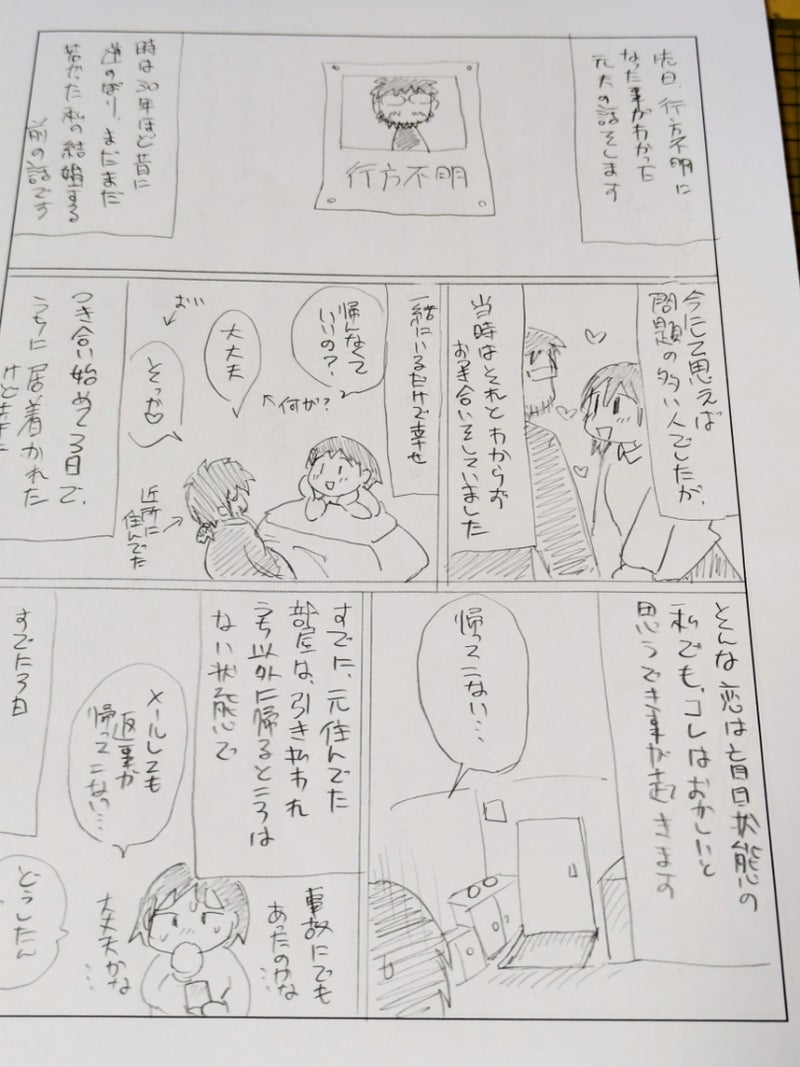 先日、行方不明に
なった事がわかった
元夫の話をします
行方不明
時は30年ほど昔に
逆のぼり、まだまだ
若かった私の結婚する
前の話です
今にして思えば
問題の多い人でしたが、
当時はそれとわからず
おつき合いをしていました
一緒にいるだけで幸せ
帰んなくて
いいの?
大丈夫
←何が?
おい
そっか♡
近所に
住んでた
つき合い始めて3日で、
うちに居着かれた
そんな恋は盲目状態の
私でも、コレはおかしいと
思うでき事が起きます
帰ってこない…
すでに、元住んでた
部屋は、引き払われ
うち以外に帰るところは
ない状態で
メールしても
返事が
帰ってこない…
事故にでも
あったのかな
…
大丈夫かな
…
すでに3日
どうしたん